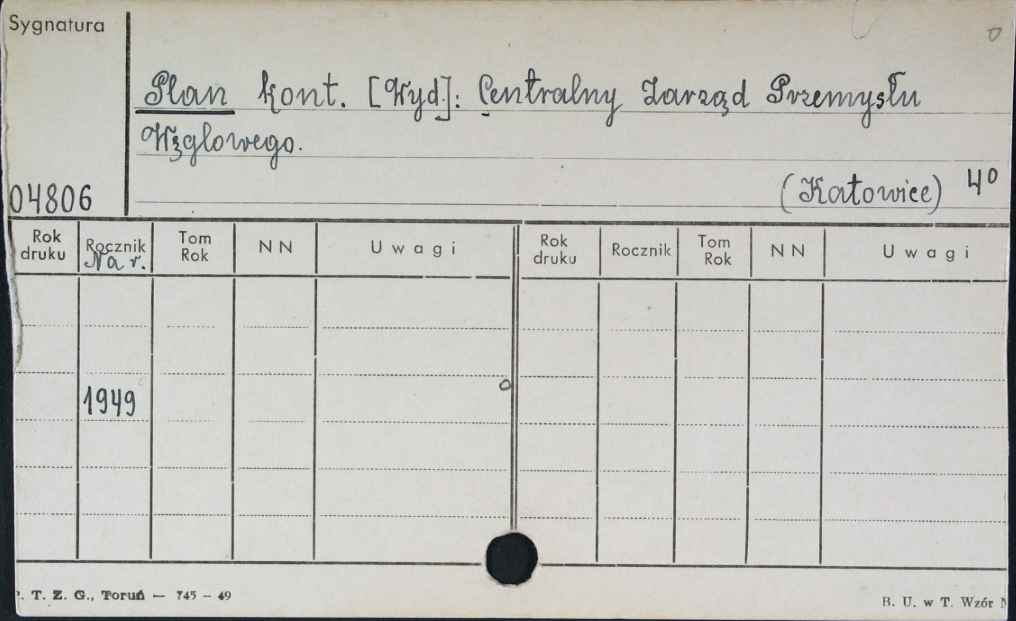 Sygnatura
Plan kont. [Wyd.]: Centralny Zarząd Przemysłu
Węglowego.
(Katowice) 4º
04806
Rok druku Rocznik Tom Rok NN Uwagi Rok druku Rocznik Tom Rok NN Uwagi
Na r.
1949
. T. Z. G., Toruń — 745 – 49
B. U. w T. Wzór